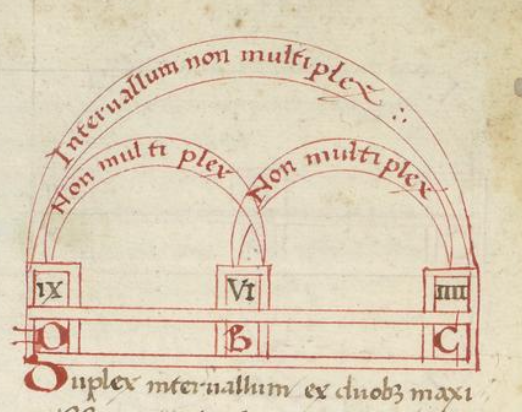 Intervallum non multiplex
Non multiplex
Non multiplex
IX
VI
IIII
D
B
C
Duplex intervallum ex duobꝫ maxi